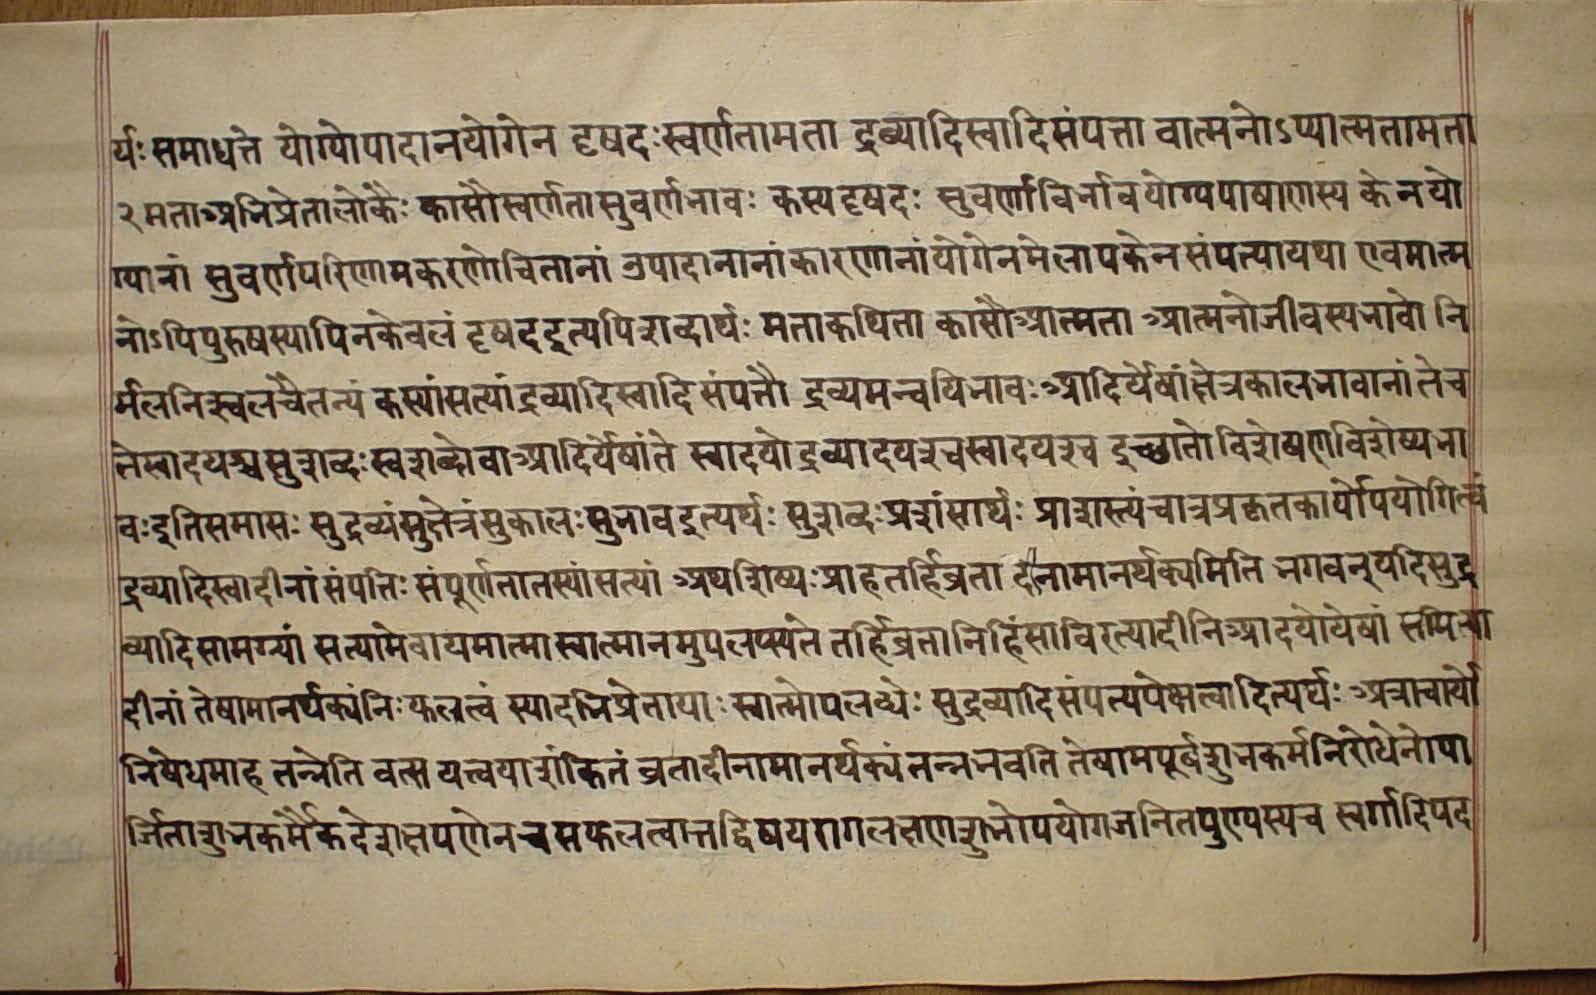 र्यः समाधत्ते योग्योपादानयोगेन दृषदः स्वर्णतामता द्रव्यादिस्वादिसंपत्ता वात्मनोऽप्यात्मतामता
२ मताअभिप्रेतालोकैः कासौस्वर्णतासुवर्णभावः कस्यदृषदः सुवर्णाविर्भावयोग्यपाषाणस्य केनयो
ग्यानां सुवर्णपरिणामकरणोचितानां उपादानानांकारणानांयोगेनमेलापकेनसंपत्यायथा एवमात्म
नोऽपिपुरुषस्यापिनकेवलं दृषदइत्यपिशब्दार्थः मताकथिता कासौआत्मता आत्मनोजीवस्यभावो नि
र्मलनिश्चलचैतन्यं कस्यांसत्यांद्रव्यादिस्वादिसंपत्तौ द्रव्यमन्वयिभावः आदिर्येषांक्षेत्रकालभावानांतेच
तेस्वादयश्चसुशब्दःस्वशब्दोवाआदिर्येषांते स्वादयो द्रव्यादयश्चस्वादयश्च इच्छातो विशेषणविशेष्यभा
वःइतिसमासः सुद्रव्यंसुक्षेत्रंसुकालःसुभावइत्यर्थः सुशब्दःप्रशंसार्थः प्राशस्त्यंचात्रप्रकृतकार्योपयोगित्वं
द्रव्यादिस्वादीनांसंपत्तिः संपूर्णतातस्यांसत्यां अथशिष्यःप्राहतर्हिव्रता दीनामानर्थक्यमिति भगवन्यदिसुद्र
व्यादिसामग्र्यां सत्यामेवायमात्मास्वात्मानमुपलप्स्यते तर्हिव्रतानिहिंसाविरत्यादीनिआदयोयेषां समित्या
दीनां तेषामानर्थक्यंनिःफलत्वं स्यादभिप्रेतायाः स्वात्मोपलब्धेः सुद्रव्यादिसंपत्यपेक्षत्वादित्यर्थः अत्राचार्यो
निषेधमाह तन्नेति वत्स यत्त्वयाशंकितं व्रतादीनामानर्थक्यं तन्नभवति तेषामपूर्वशुभकर्मनिरोधेनोपा
र्जिताशुभकर्मैकदेशक्षपणेनचसफलत्वात्तद्विषयरागलक्षणशुभोपयोगजनितपुण्यस्यच स्वर्गादिपद